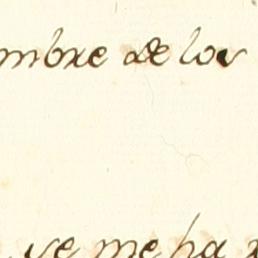 mbre de los
ve me ha